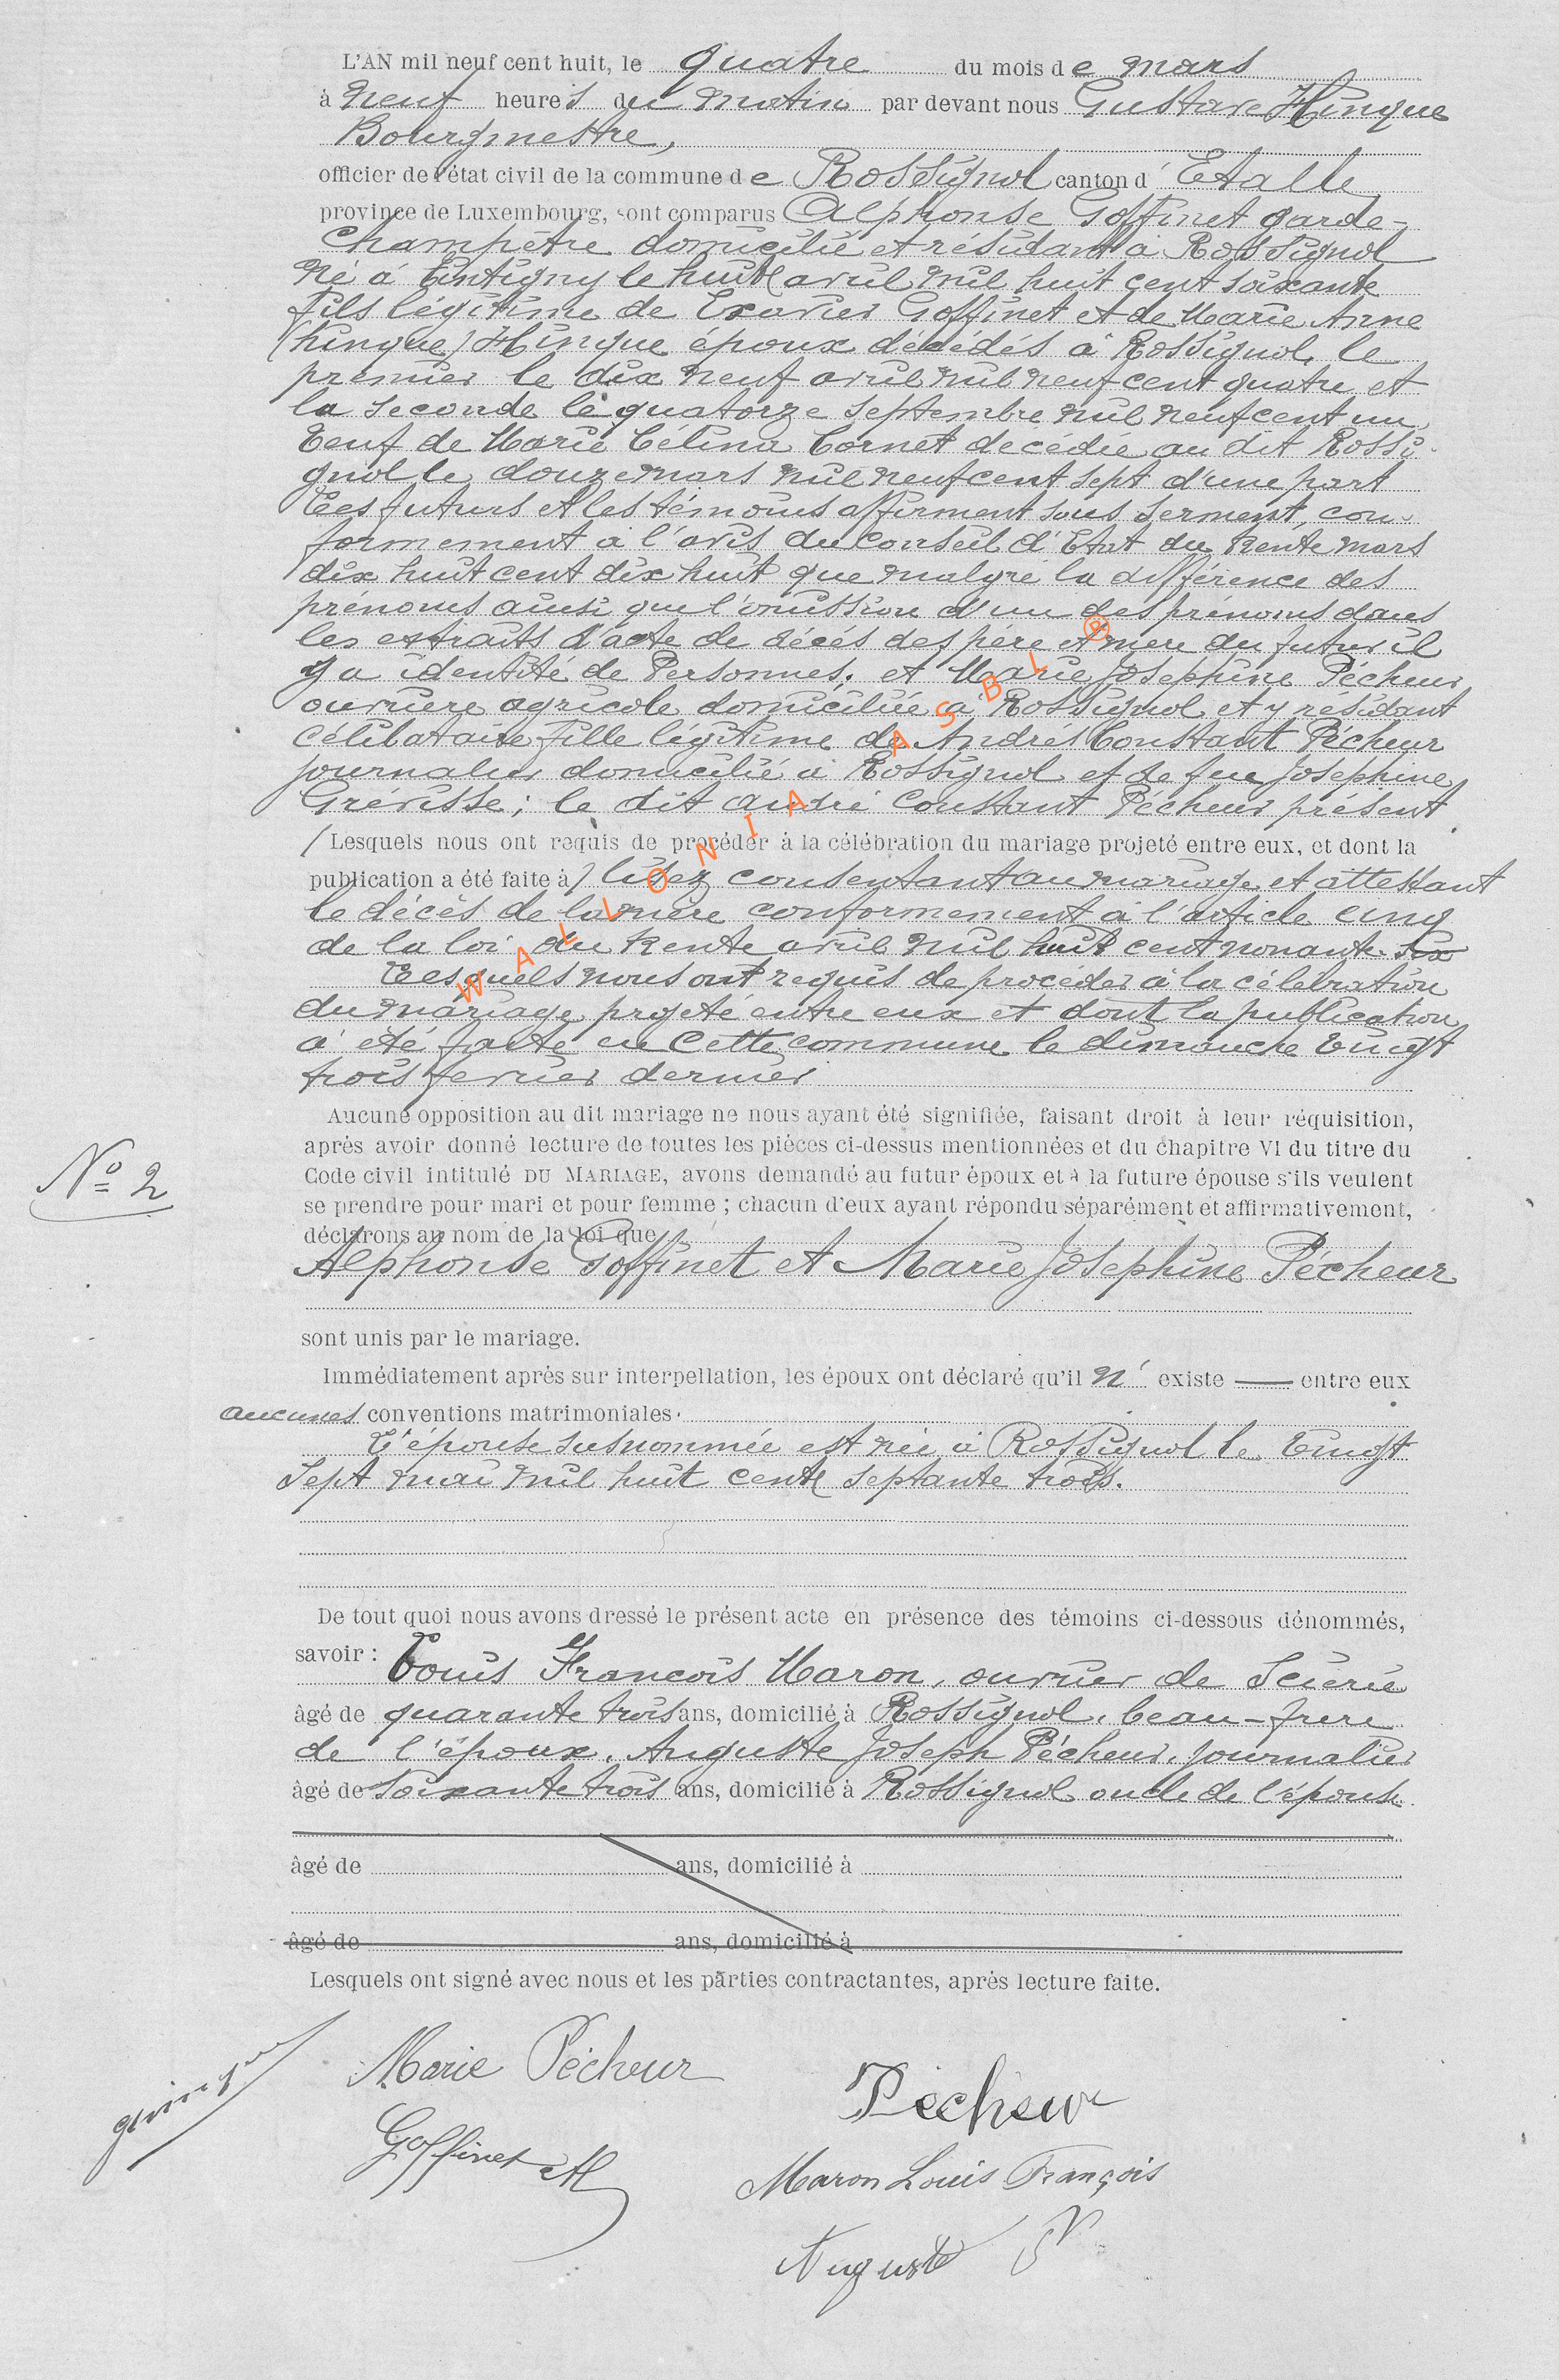 L'AN mil neuf cent huit, le quatre du mois de mars
à neuf heures du matin par devant nous Gustave Hinque
Bourgmestre,
officier de l'état civil de la commune de Rossignol canton d'Etalle
province de Luxembourg, sont comparus Alphonse Goffinet garde-
champêtre domicilié et résidant à Rossignol
né à Tintigny le huit avril mil huit cent soixante
fils légitime de Exavier Goffinet et de Marie Anne
(hinque) Hinque époux décédés à Rossignol, le
premier le dix neuf avril mil neuf cent quatre et
la seconde le quatorze septembre mil neuf cent un,
Veuf de Marie Célina Cornet decédée au dit Rossi-
gnol le douze mars mil neuf cent sept d'une part
Les futurs et les témoins affirment sous serment, con-
formement à l'avis du Conseil d'Etat du trente mars
dix huit cent dix huit que malgré la différence des
prénoms ainsi que l'omission d'un des prénoms dans
les extraits d'acte de décés des père et mere du futur il
y a identité de Personnes. et Marie Joséphine Pécheur
ouvrière agricole domiciliée à Rossignol et y résidant
célibataire fille légitime de André Constant Pécheur
journalier domicilié à Rossignol et de feu Joséphine
Grévisse; le dit André Constant Pécheur présent
(Lesquels nous ont requis de procéder à la célébration du mariage projeté entre eux, et dont la
publication a été faite à) lisez consentant au mariage et attestant
le décès de la mère conformement à l'article cinq
de la loi du trente avril mil huit cent nonante six
Lesquels nous ont requis de procéder à la célébration
du mariage projeté entre eux et dont la publication
a été faite en cette commune le dimanche vingt
trois fevrier dernier
Aucune opposition au dit mariage ne nous ayant été signifiée, faisant droit à leur réquisition,
après avoir donné lecture de toutes les pièces ci-dessus mentionnées et du chapitre VI du titre du
Code civil intitulé DU MARIAGE, avons demandé au futur époux et à la future épouse s'ils veulent
se prendre pour mari et pour femme ; chacun d'eux ayant répondu séparément et affirmativement,
N° 2
déclarons au nom de la loi que
Alphonse Goffinet et Marie Joséphine Pécheur
sont unis par le mariage.
Immédiatement après sur interpellation, les époux ont déclaré qu'il n' existe — entre eux
aucunes conventions matrimoniales.
L'épouse susnommée est née à Rossignol le vingt
sept mai mil huit cent septante trois.
De tout quoi nous avons dressé le présent acte en présence des témoins ci-dessous dénommés,
savoir : Louis François Maron, ouvrier de Scierie
âgé de quarante trois ans, domicilié à Rossignol, beau-frère
de l'époux. Auguste Joseph Pécheur, journalier
âgé de soixante trois ans, domicilié à Rossignol oncle de l'épouse
âgé de ans, domicilié à
âgé de ans, domicilié à
Lesquels ont signé avec nous et les parties contractantes, après lecture faite.
Marie Pécheur
Pecheur
Goffinet Al
Maron Louis François
Auguste P
WALLONIA ASBL ®